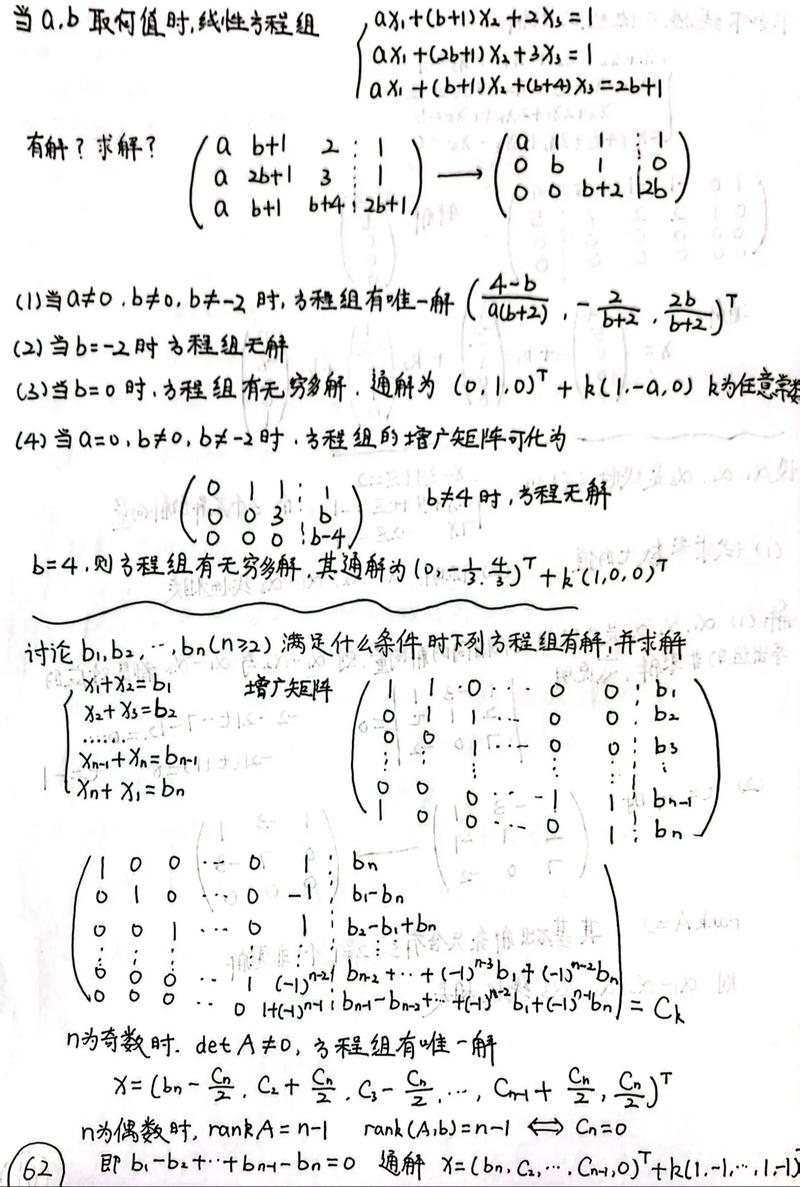 当 a.b 取何值时,线性方程组 { ax₁+(b+1)x₂+2x₃=1
ax₁+(2b+1)x₂+3x₃=1
ax₁+(b+1)x₂+(b+4)x₃=2b+1
有解? 求解? ( a b+1 2 ⋮ 1 ) → ( a 1 1 ⋮ 1 )
( a 2b+1 3 ⋮ 1 ) ( 0 b 1 ⋮ 0 )
( a b+1 b+4 ⋮ 2b+1 ) ( 0 0 b+2 | 2b )
(1)当a≠0.b≠0,b≠-2 时,方程组有唯一解 ( (4-b)/(a(b+2)) , -2/(b+2) , 2b/(b+2) )ᵀ
(2)当b=-2时 方程组无解
(3)当b=0 时,方程组有无穷多解. 通解为 (0,1,0)ᵀ + k(1,-a,0) k为任意常数
(4)当a=0,b≠0,b≠-2时.方程组的增广矩阵可化为
( 0 1 1 ⋮ 1 )
( 0 0 3 ⋮ b ) b≠4时,方程无解
( 0 0 0 ⋮ b-4 )
b=4,则方程组有无穷多解,其通解为(0,-1/3,4/3)ᵀ+k(1,0,0)ᵀ
讨论 b₁,b₂,…,bn(n≥2) 满足什么条件时下列方程组有解,并求解
{ x₁+x₂=b₁ 增广矩阵 ( 1 1 0 … 0 0 ⋮ b₁ )
x₂+x₃=b₂ ( 0 1 1 … 0 0 ⋮ b₂ )
…… ( 0 0 1 … 0 0 ⋮ b₃ )
xn-1+xn=bn-1 ( 0 0 0 … 1 1 ⋮ bn-1 )
xn+x₁=bn ( 1 0 0 … 0 1 ⋮ bn )
( 1 0 0 … 0 1 ⋮ bn )
0 1 0 … 0 -1 ⋮ b₁-bn
0 0 1 … 0 1 ⋮ b₂-b₁+bn
⋮ ⋮ ⋮ ⋮ ⋮ ⋮
0 0 0 … 1 (-1)ⁿ⁻² ⋮ bn-2+…+(-1)ⁿ⁻³b₁+(-1)ⁿ⁻²bn
0 0 0 … 0 1+(-1)ⁿ⁻¹ ⋮ bn-1-bn-2+…+(-1)ⁿ⁻²b₁+(-1)ⁿ⁻¹bn = Ck
n为奇数时. detA≠0, 方程组有唯一解
x=(bn-Cn/2, C₂+Cn/2, C₃-Cn/2, …, Cn-1+Cn/2, Cn/2)ᵀ
n为偶数时, rankA=n-1 rank(A,b)=n-1 ⟺ Cn=0
62 即 b₁-b₂+…+bn-1-bn=0 通解 x=(bn,C₂,…,Cn-1,0)ᵀ+k(1,-1,…,1,-1)ᵀ